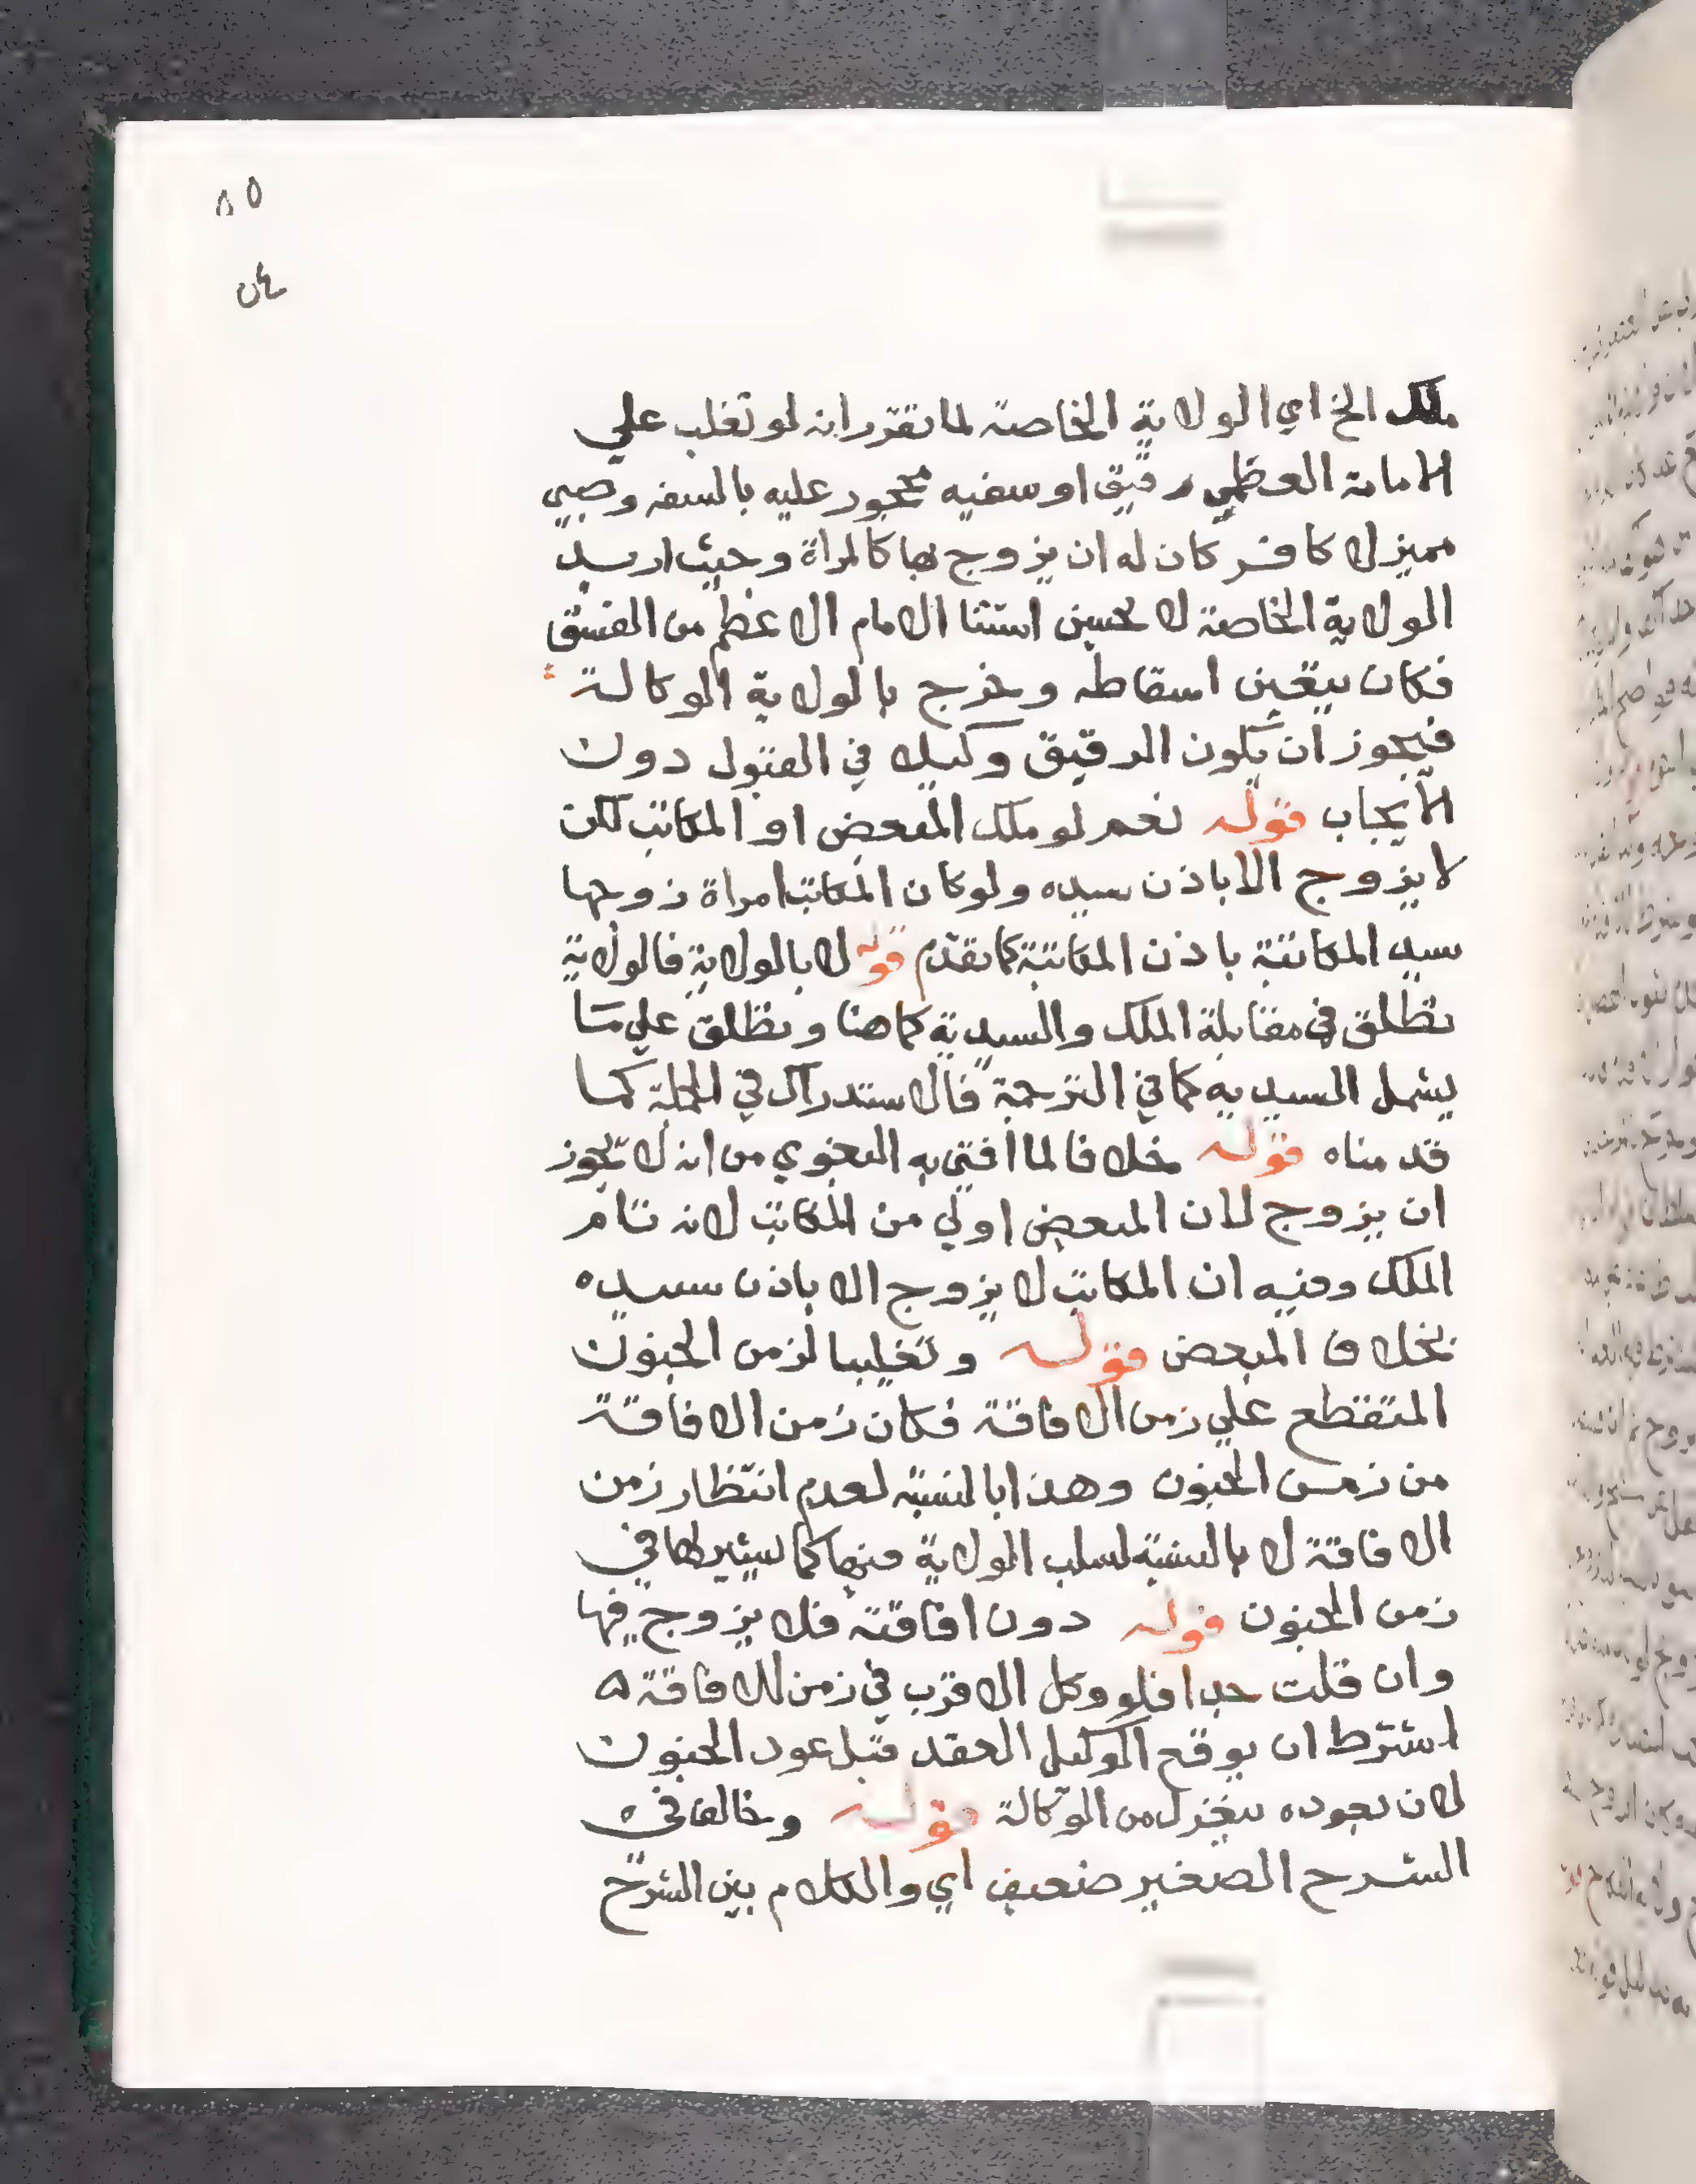 ٨٥
٥٤
ملك الخ اي الولاية الخاصة لما تقرر انه لو تغلب علي
الامامة العظمي رقيق او سفيه محجور عليه بالسفه وصبي
مميز لا كافر كان له ان يزوج بها كالمراة وحيث اريد
الولاية الخاصة لا يحسن استثنا الامام الاعظم من الفسق
فكان يتعين اسقاطه وخرج بالولاية الوكالة
فيجوز ان يكون الرقيق وكيلا في القبول دون
الايجاب قوله نعم لو ملك المبعض او المكاتب لكن
لا يزوج الا باذن سيده ولو كان المكاتب امراة زوجها
سيد المكاتبة باذن المكاتبة كما تقدم قوله لا بالولاية فالولاية
تطلق في مقابلة الملك والسيدية كما هنا وتطلق علي ما
يشمل السيديه كما في الترجمة فالاستدراك في الجملة كما
قدمناه قوله خلافا لما افتي به البغوي من انه لا يجوز
ان يزوج لان المبعض اولي من المكاتب لانه تام
الملك وفيه ان المكاتب لا يزوج الا باذن سيده
بخلاف المبعض قوله وتغليبا لزمن الجنون
المتقطع علي زمن الافاقة فكان زمن الافاقة
من زمن الجنون وهذا بالنسبة لعدم انتظار زمن
الافاقة لا بالنسبة لسلب الولاية فيها كما سيشير لها في
زمن الجنون قوله دون افاقته فلا يزوج فيها
وان قلت جدا فلو وكل الاقرب في زمن الافاقة ه
اشترط ان يوقع الوكيل العقد قبل عود الجنون
لان بعوده ينعزل من الوكالة قوله وخالف في
الشرح الصغير ضعيف اي والكلام بين الشرح